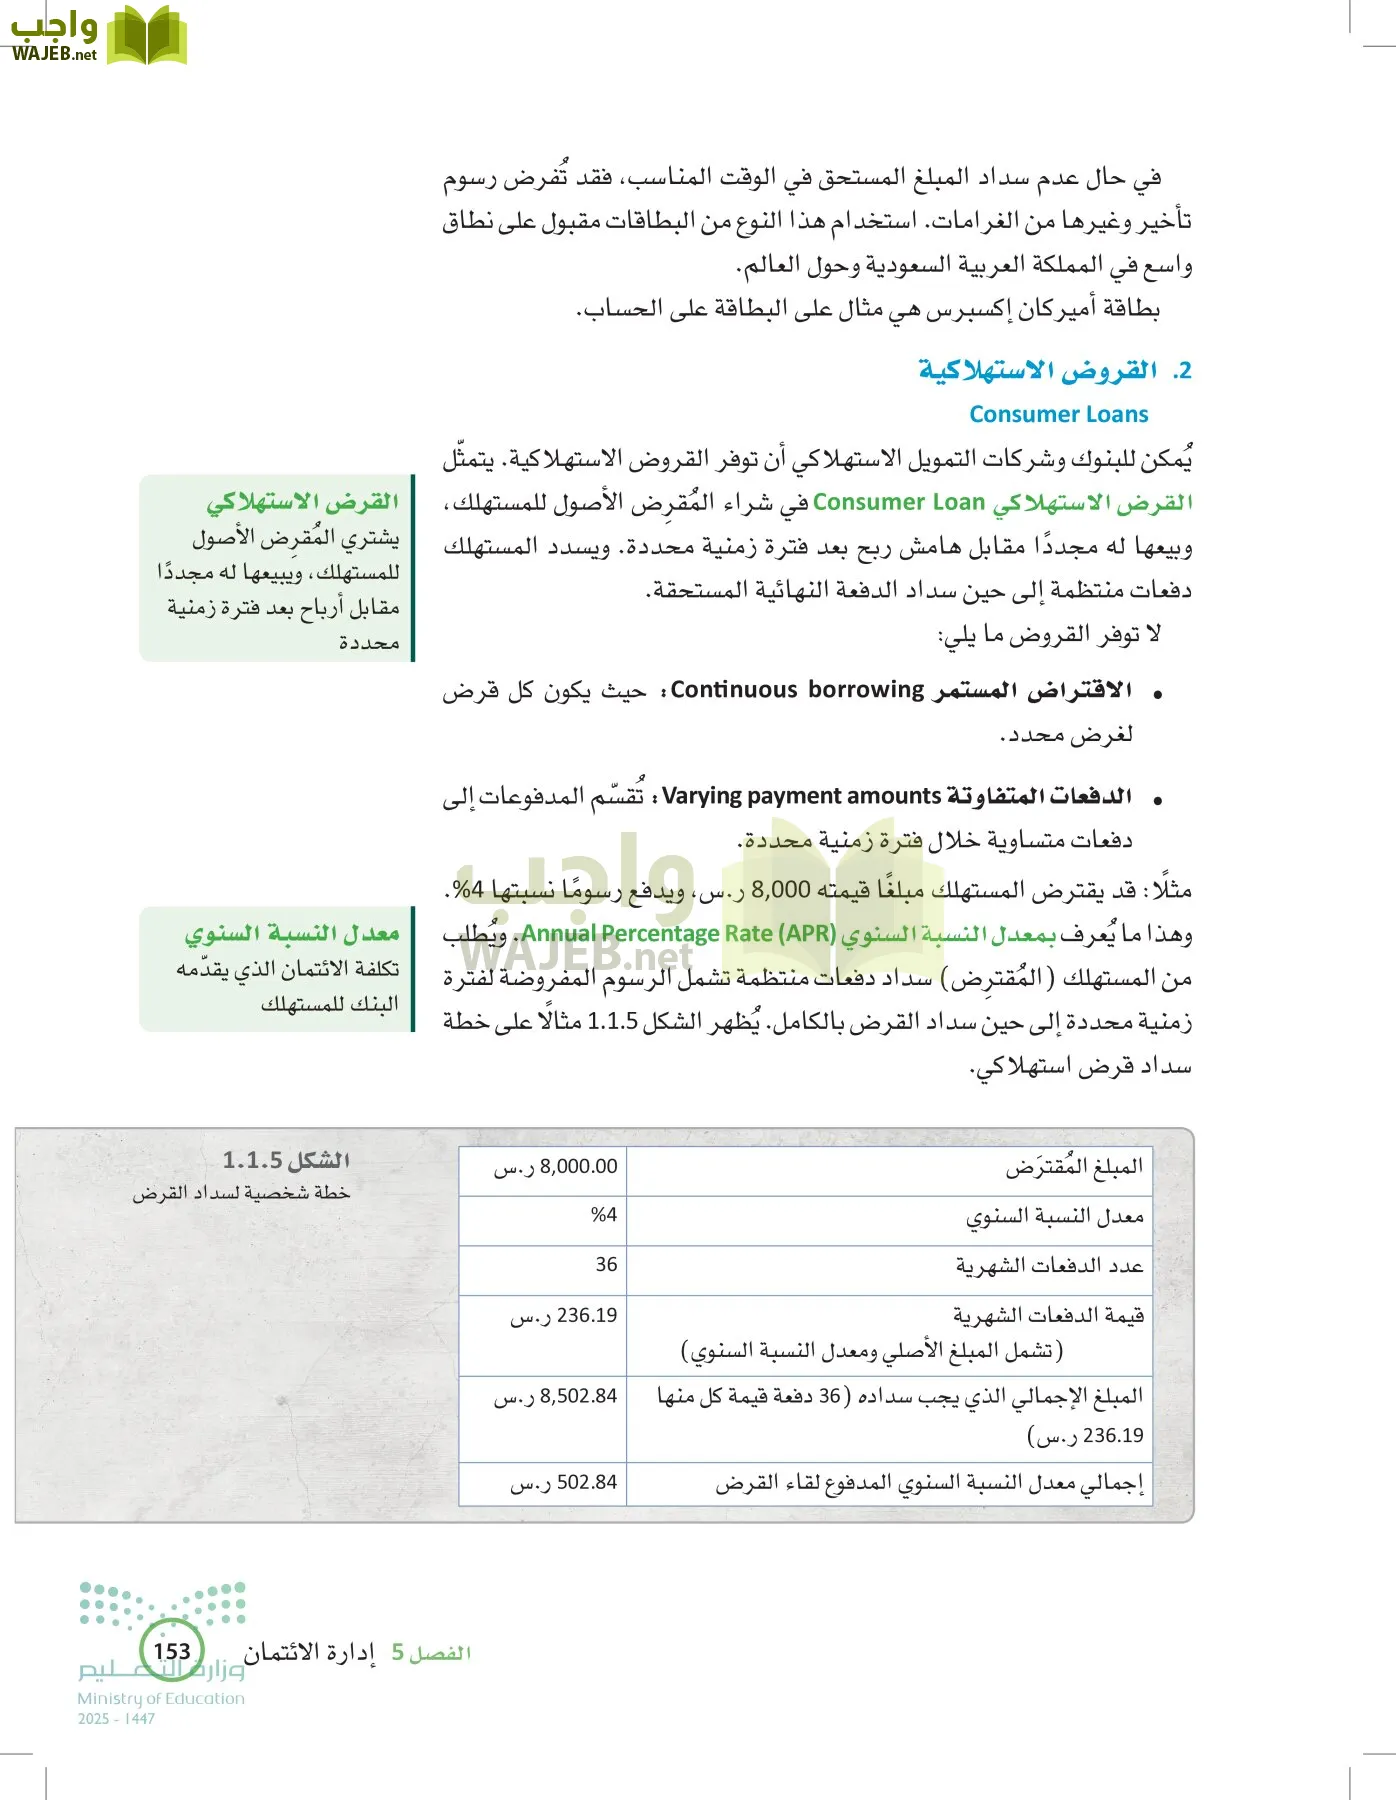 واجب
WAJEB.net
في حال عدم سداد المبلغ المستحق في الوقت المناسب، فقد تُفرض رسوم
تأخير وغيرها من الغرامات. استخدام هذا النوع من البطاقات مقبول على نطاق
واسع في المملكة العربية السعودية وحول العالم.
بطاقة أميركان إكسبرس هي مثال على البطاقة على الحساب.
2. القروض الاستهلاكية
Consumer Loans
يُمكن للبنوك وشركات التمويل الاستهلاكي أن توفر القروض الاستهلاكية. يتمثّل
القرض الاستهلاكي Consumer Loan في شراء المُقرِض الأصول للمستهلك،
وبيعها له مجددًا مقابل هامش ربح بعد فترة زمنية محددة. ويسدد المستهلك
دفعات منتظمة إلى حين سداد الدفعة النهائية المستحقة.
لا توفر القروض ما يلي:
• الاقتراض المستمر Continuous borrowing: حيث يكون كل قرض
لغرض محدد.
• الدفعات المتفاوتة Varying payment amounts: تُقسّم المدفوعات إلى
دفعات متساوية خلال فترة زمنية محددة.
مثلًا: قد يقترض المستهلك مبلغًا قيمته 8,000 ر.س، ويدفع رسومًا نسبتها 4%.
وهذا ما يُعرف بمعدل النسبة السنوي Annual Percentage Rate (APR). ويُطلب
من المستهلك (المُقترِض) سداد دفعات منتظمة تشمل الرسوم المفروضة لفترة
زمنية محددة إلى حين سداد القرض بالكامل. يُظهر الشكل 1.1.5 مثالًا على خطة
سداد قرض استهلاكي.
القرض الاستهلاكي
يشتري المُقرِض الأصول
للمستهلك، ويبيعها له مجددًا
مقابل أرباح بعد فترة زمنية
محددة
معدل النسبة السنوي
تكلفة الائتمان الذي يقدّمه
البنك للمستهلك
واجب
WAJEB.net
المبلغ المُقترَض 8,000.00 ر.س
معدل النسبة السنوي 4%
عدد الدفعات الشهرية 36
قيمة الدفعات الشهرية 236.19 ر.س
(تشمل المبلغ الأصلي ومعدل النسبة السنوي)
المبلغ الإجمالي الذي يجب سداده (36 دفعة قيمة كل منها 8,502.84 ر.س
236.19 ر.س)
إجمالي معدل النسبة السنوي المدفوع لقاء القرض 502.84 ر.س
الشكل 1.1.5
خطة شخصية لسداد القرض
الفصل 5 إدارة الائتمان 153
وزارة التعليم
Ministry of Education
2025 - 1447